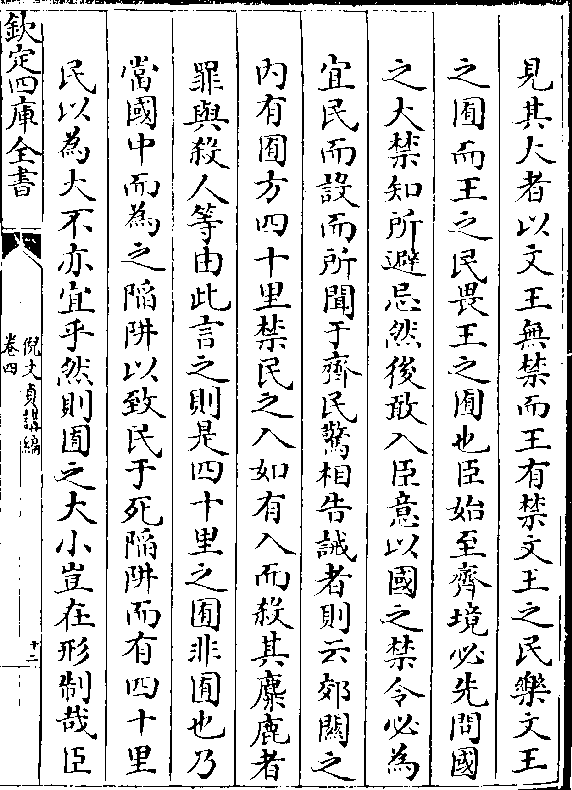 見其大者以文王無禁而王有禁文王之民樂文王
之囿而王之民畏王之囿也臣始至齊境必先問國
之大禁知所避忌然後敢入臣意以國之禁令必為
宜民而設而所聞于齊民驚相告誡者則云郊關之
内有囿方四十里禁民之入如有入而殺其麋鹿者
罪與殺人等由此言之則是四十里之囿非囿也乃
當國中而為之陷阱以致民于死陷阱而有四十里
民以為大不亦宜乎然則囿之大小豈在形制哉臣
欽定四庫全書
倪文貞講編
卷四
十二